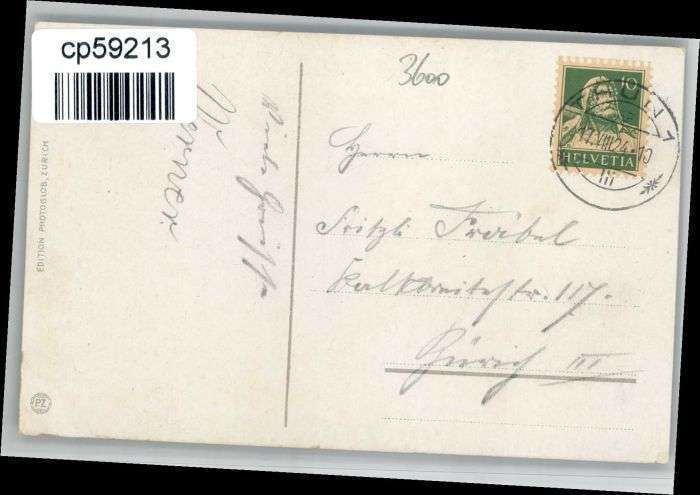 cp59213
3600
10
HELVETIA
THUN 1
EDITION PHOTOGLOB, ZÜRICH
PZ
Herrn
Fritzli Fröbel
Kalkbreitestr. 117.
Zürich III